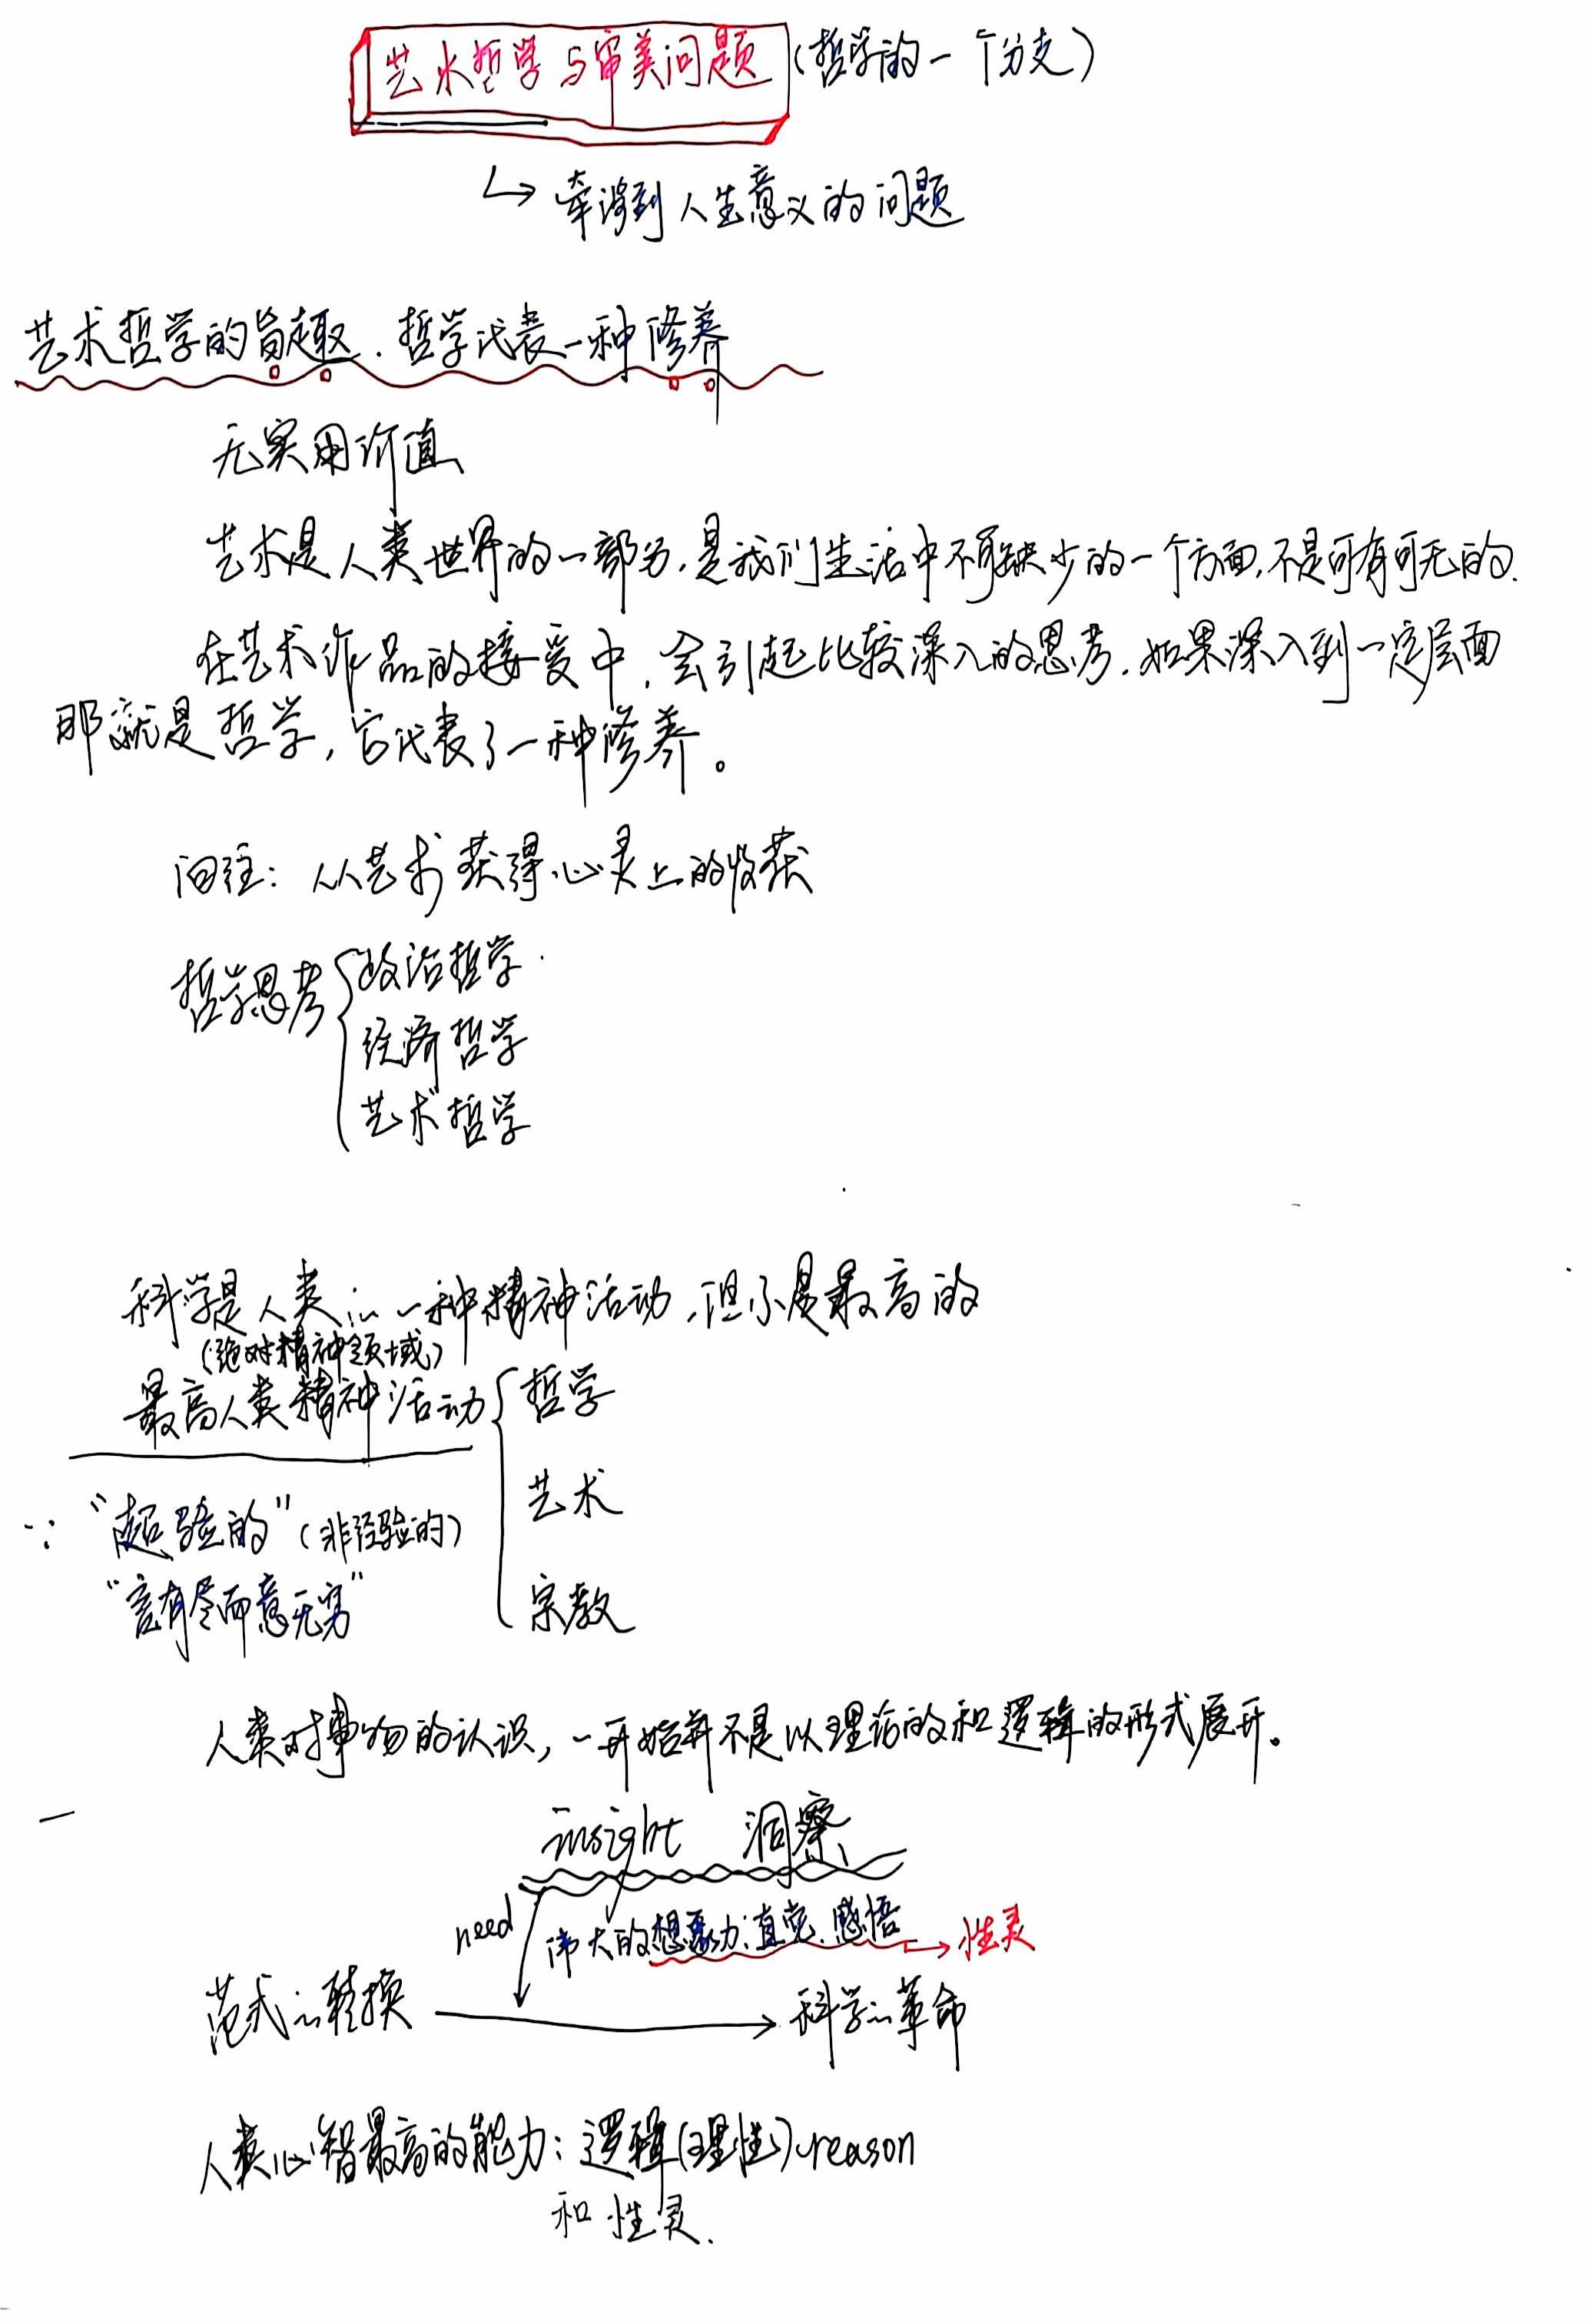 艺术哲学与审美问题(哲学的一个分支)
↳ 牵涉到人生意义的问题
艺术哲学的旨趣.哲学代表一种修养
无实用价值
艺术是人类世界的一部分,是我们生活中不可缺少的一个方面,不是可有可无的.
在艺术作品的接受中,会引起比较深入的思考.如果深入到一定层面
那就是哲学,它代表了一种修养。
: 从艺术获得心灵上的收获
哲学思考
政治哲学
经济哲学
艺术哲学
科学是人类的一种精神活动,但不是最高的
(绝对精神领域)
最高人类精神活动
哲学
艺术
宗教
∵ “超验的”(非经验的)
“言有尽而意无穷”
人类对事物的认识,一开始并不是以理论的和逻辑的形式展开。
insight 洞察
need
伟大的想象力、直觉、感悟 → 性灵
范式的转换 → 科学的革命
人类心智最高的能力:逻辑(理性)reason
和性灵.